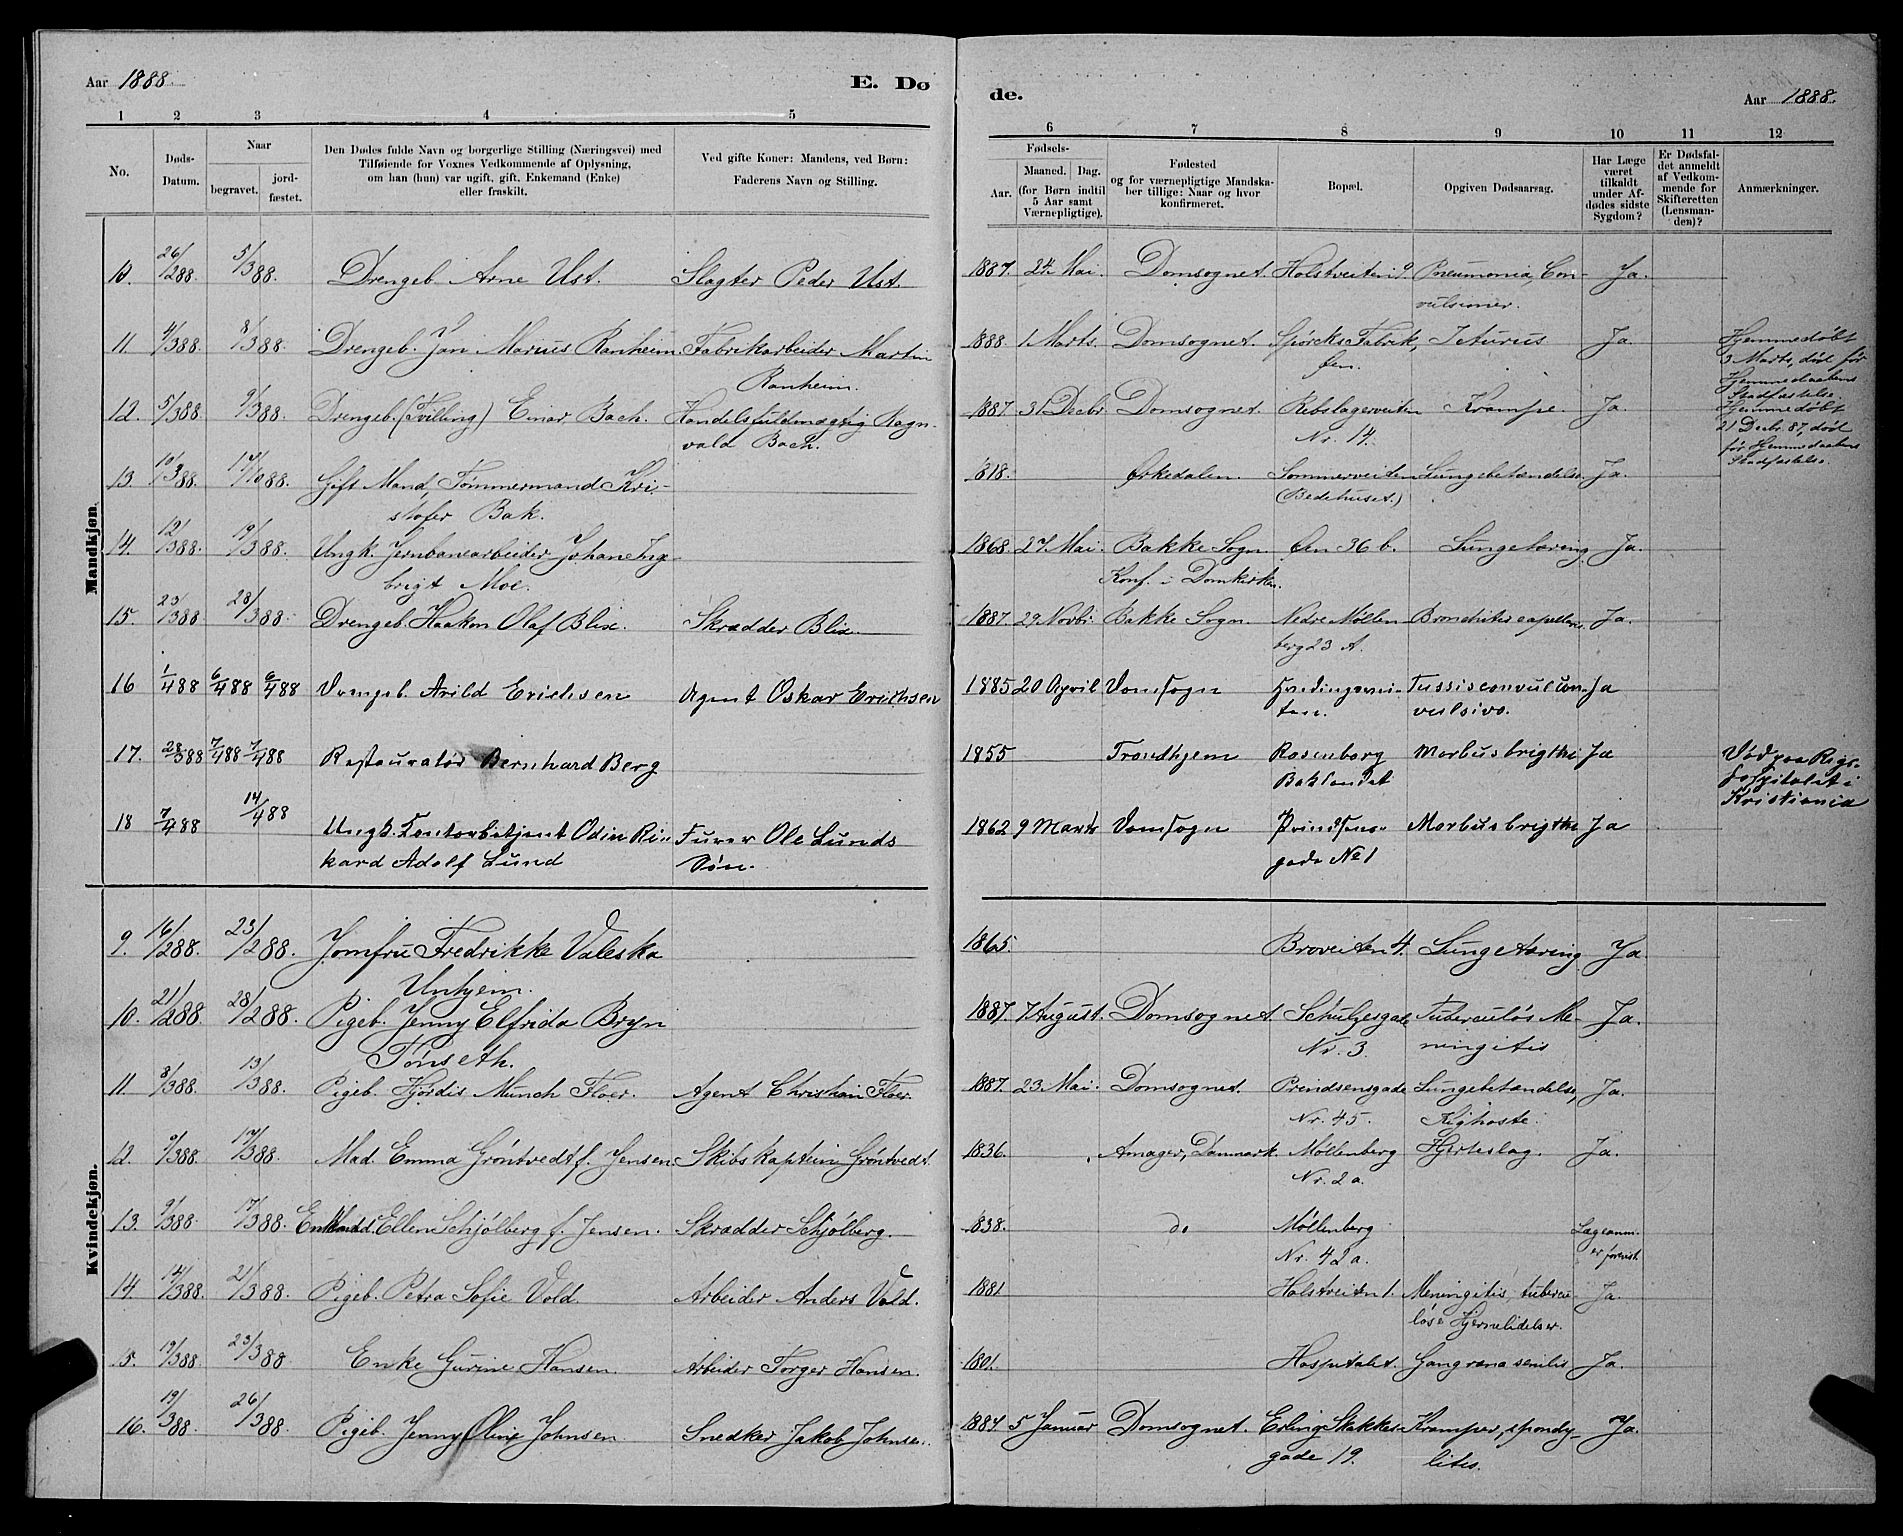 Aar 1888. E. Dø de. Aar 1888.
1 2 3 4 5 6 7 8 9 10 11 12
No. Døds-Datum. Naar begravet. jordfæstet. Den Dødes fulde Navn og borgerlige Stilling (Næringsvei) med Tilføiende for Voxnes Vedkommende af Oplysning, om han (hun) var ugift, gift, Enkemand (Enke) eller fraskilt. Ved gifte Koner: Mandens, ved Børn: Faderens Navn og Stilling. Fødsels- Aar. Maaned. Dag. (for Børn indtil 5 Aar samt Værnepligtige). Fødested og for værnepligtige Mandskaber tillige: Naar og hvor konfirmeret. Bopæl. Opgiven Dødsaarsag. Har Læge været tilkaldt under Afdødes sidste Sygdom? Er Dødsfaldet anmeldt af Vedkommende for Skifteretten (Lensmanden)? Anmærkninger.
Mandkjøn.
10. 26/288. 5/388. Drengeb. Arne Ust. Slagter Peder Ust. 1887. 24 Mai. Domsognet. Holstveiten 9. Pneumonia, Con-
vulsioner. Ja.
11. 4/388. 8/388. Drengeb. Jan Marius Ranheim Fabrikarbeider Martin
Ranheim. 1888. 1 Marts. Domsognet. Spørcks Fabrik,
Øen. Icturus Ja Hjemmedøbt
3 Marts, død før
Hjemmedaabens
Stadfæstelse.
12. 5/388. 9/388. Drengeb. (Tvilling) Einar Bach. Handelsfuldmægtig Ragn-
vald Bach. 1887. 31 Decbr. Domsognet. Rebslagerveiten
Nr. 14. Krampe. Ja. Hjemmedøbt
21 Decbr. 87, død
før Hjemmedaabens
Stadfæstelse.
13. 10/388. 17/1088. Gift Mand, Tømmermand Kri-
stofer Bak. 818. Ørkedalen. Sommerveiten
(Bedehuset.) Lungebetændelse Ja.
14. 12/388. 19/388. Ungk. Jernbanearbeider Johan Ing
brigt Moe. 1868. 27. Mai. Bakke Sogn.
Konf. i Domkirken. Øen 36 b. Lungetæring. Ja.
15. 23/388 28/388. Drengeb. Haakon Olaf Blix. Skrædder Blix. 1887. 29 Novbr. Bakke Sogn. Nedre Møllen
berg 23 A. Bronchiter capellaris. Ja.
16 1/488 6/488 6/488 Drengeb. Arild Erichsen Agent Oskar Erichsen 1885 20 April Domsogn Tussisconvulcon-
vulsiva. Ja
17. 28/388 7/488 7/488 Restauratør Bernhard Berg 1855 Trondhjem Rosenborg
Baklandet Morbusbrigthi Ja Død paa Rigs-
hospitalet i
Kristiania
18 7/488 14/488 Ungk. Contorbetjent Odin Ri-
kard Adolf Lund Furer Ole Lunds
Søn. 1862 9 Marts Domsogn Prindsens-
gade No 1 Morbusbrigthi Ja
Kvindekjøn.
9. 16/288. 23/288. Jomfru Fredrikke Valeska
Unhjem. 1865. Broveiten 4. Lungetæring Ja
10. 21/288. 28/288. Pigeb. Jenny Elfrida Bryn
Tønseth. 1887. 7 August. Domsognet. Schulzesgade
Nr. 3. Tuberculøs Me-
ningitis Ja.
11. 8/388. 13/388. Pigeb. Hjørdis Munch Floer. Agent Christian Floer. 1887. 23 Mai. Domsognet. Prindsensgade
Nr. 45. Lungebetændelse,
Kighoste. Ja.
12. 9/388. 17/388. Mad. Emma Grøntvedt f. Jensen Skibskaptein Grøntvedt. 1836. Amager, Danmark Møllenberg
Nr. 2 a. Hjerteslag. Ja.
13. 9/388. 17/388. Ellen Schjølberg f. Jensen. Skrædder Schjølberg. 1838. do Møllenberg
Nr. 42 a.
14. 14/388. 21/388. Pigeb. Petra Sofie Vold. Arbeider Anders Vold. 1881 Holstveiten 1. Meningitis, tubercu
løse Hjernelidelser. Ja.
15. 19/388. 23/388 Enke Gurine Hansen. Arbeider Torger Hansen. 1801. Hospitalet. Gangræna senilis Ja.
16. 19/388. 26/388. Pigeb. Jenny Oline Johnsen Snedker Jakob Johnsen. 1884. 5 Januar Domsognet. Erling Skakkes-
gade 19. Kramper, spondy-
litis. Ja.